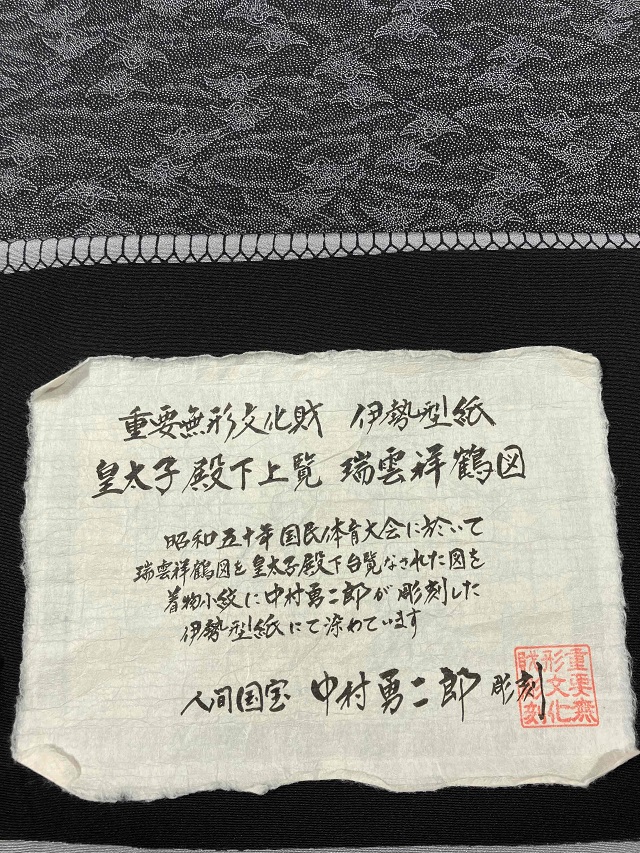 重要無形文化財 伊勢型紙
皇太子殿下上覧 瑞雲祥鶴図
昭和五十年国民体育大会に於いて
瑞雲祥鶴図を皇太子殿下台覧なされた図を
着物小紋に中村勇二郎が彫刻した
伊勢型紙にて染めています
人間国宝 中村勇二郎 彫刻
重要無
形文化
財彫刻